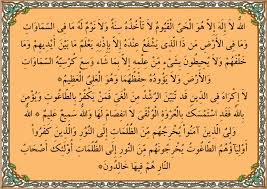 الله لَا إِلَهَ إِلَّا هُوَ الْحَيُّ الْقَيُّومُ لَا تَأْخُذُهُ سِنَةٌ وَلَا نَوْمٌ لَهُ مَا فِي السَّمَاوَاتِ
وَمَا فِي الْأَرْضِ مَنْ ذَا الَّذِي يَشْفَعُ عِنْدَهُ إِلَّا بِإِذْنِهِ يَعْلَمُ مَا بَيْنَ أَيْدِيهِمْ وَمَا
خَلْفَهُمْ وَلَا يُحِيطُونَ بِشَيْءٍ مِنْ عِلْمِهِ إِلَّا بِمَا شَاءَ وَسِعَ كُرْسِيُّهُ السَّمَاوَاتِ
وَالْأَرْضَ وَلَا يَؤُودُهُ حِفْظُهُمَا وَهُوَ الْعَلِيُّ الْعَظِيمُ
لَا إِكْرَاهَ فِي الدِّينِ قَدْ تَبَيَّنَ الرُّشْدُ مِنَ الْغَيِّ فَمَنْ يَكْفُرْ بِالطَّاغُوتِ وَيُؤْمِنْ
بِاللهِ فَقَدِ اسْتَمْسَكَ بِالْعُرْوَةِ الْوُثْقَى لَا انْفِصَامَ لَهَا وَاللهُ سَمِيعٌ عَلِيمٌ الله
وَلِيُّ الَّذِينَ آمَنُوا يُخْرِجُهُمْ مِنَ الظُّلُمَاتِ إِلَى النُّورِ وَالَّذِينَ كَفَرُوا
أَوْلِيَاؤُهُمُ الطَّاغُوتُ يُخْرِجُونَهُمْ مِنَ النُّورِ إِلَى الظُّلُمَاتِ أُولَئِكَ أَصْحَابُ
النَّارِ هُمْ فِيهَا خَالِدُونَ